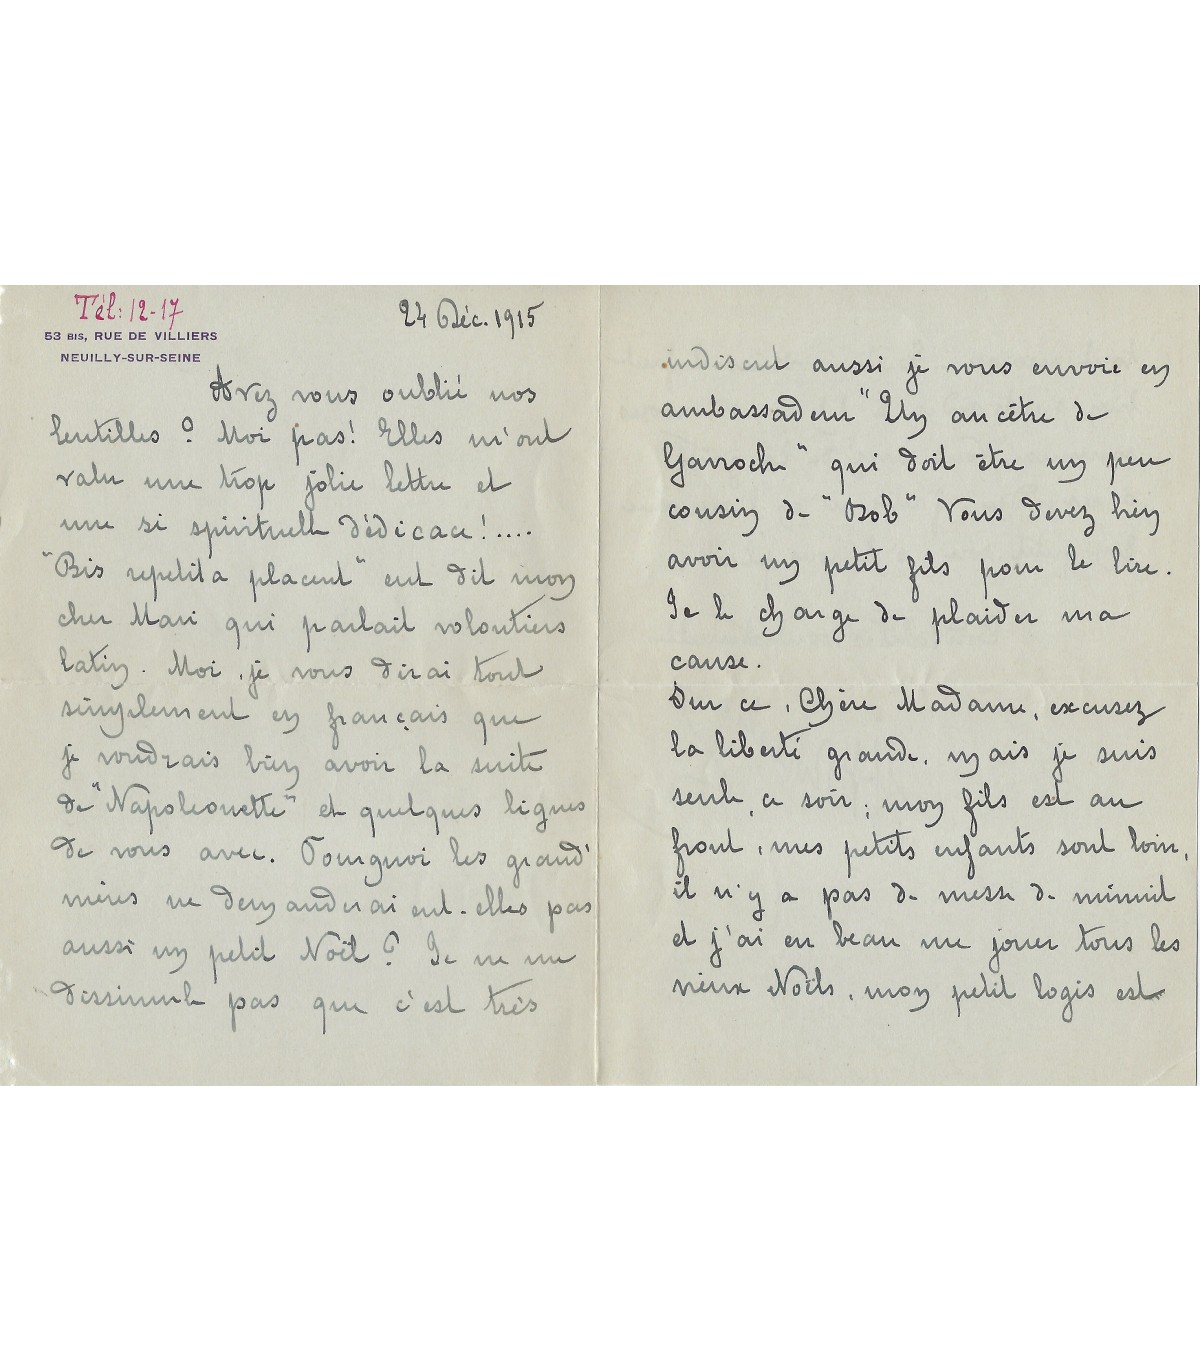 Tél: 12-17
53 BIS, RUE DE VILLIERS
NEUILLY-SUR-SEINE
24 Déc. 1915
Avez vous oublié nos
lentilles ? Moi pas! Elles m'ont
valu une trop jolie lettre et
une si spirituelle dédicace!....
"Bis repetita placent" eut dit mon
cher Mari qui parlait volontiers
latin. Moi, je vous dirai tout
simplement en français que
je voudrais bien avoir la suite
de "Napoleonette" et quelques lignes
de vous avec. Pourquoi les grand'
mères ne demanderaient-elles pas
aussi un petit Noël ? Je ne me
dissimule pas que c'est très
indiscret aussi je vous envoie en
ambassadeur "Un ancêtre de
Gavroche" qui doit être un peu
cousin de "Osob" Vous devez bien
avoir un petit fils pour le lire.
Je le charge de plaider ma
cause.
Sur ce, Chère Madame, excusez
la liberté grande, mais je suis
seule, ce soir; mon fils est au
front, mes petits enfants sont loin,
il n'y a pas de messe de minuit
et j'ai eu beau me jouer tous les
vieux Noëls, mon petit logis est